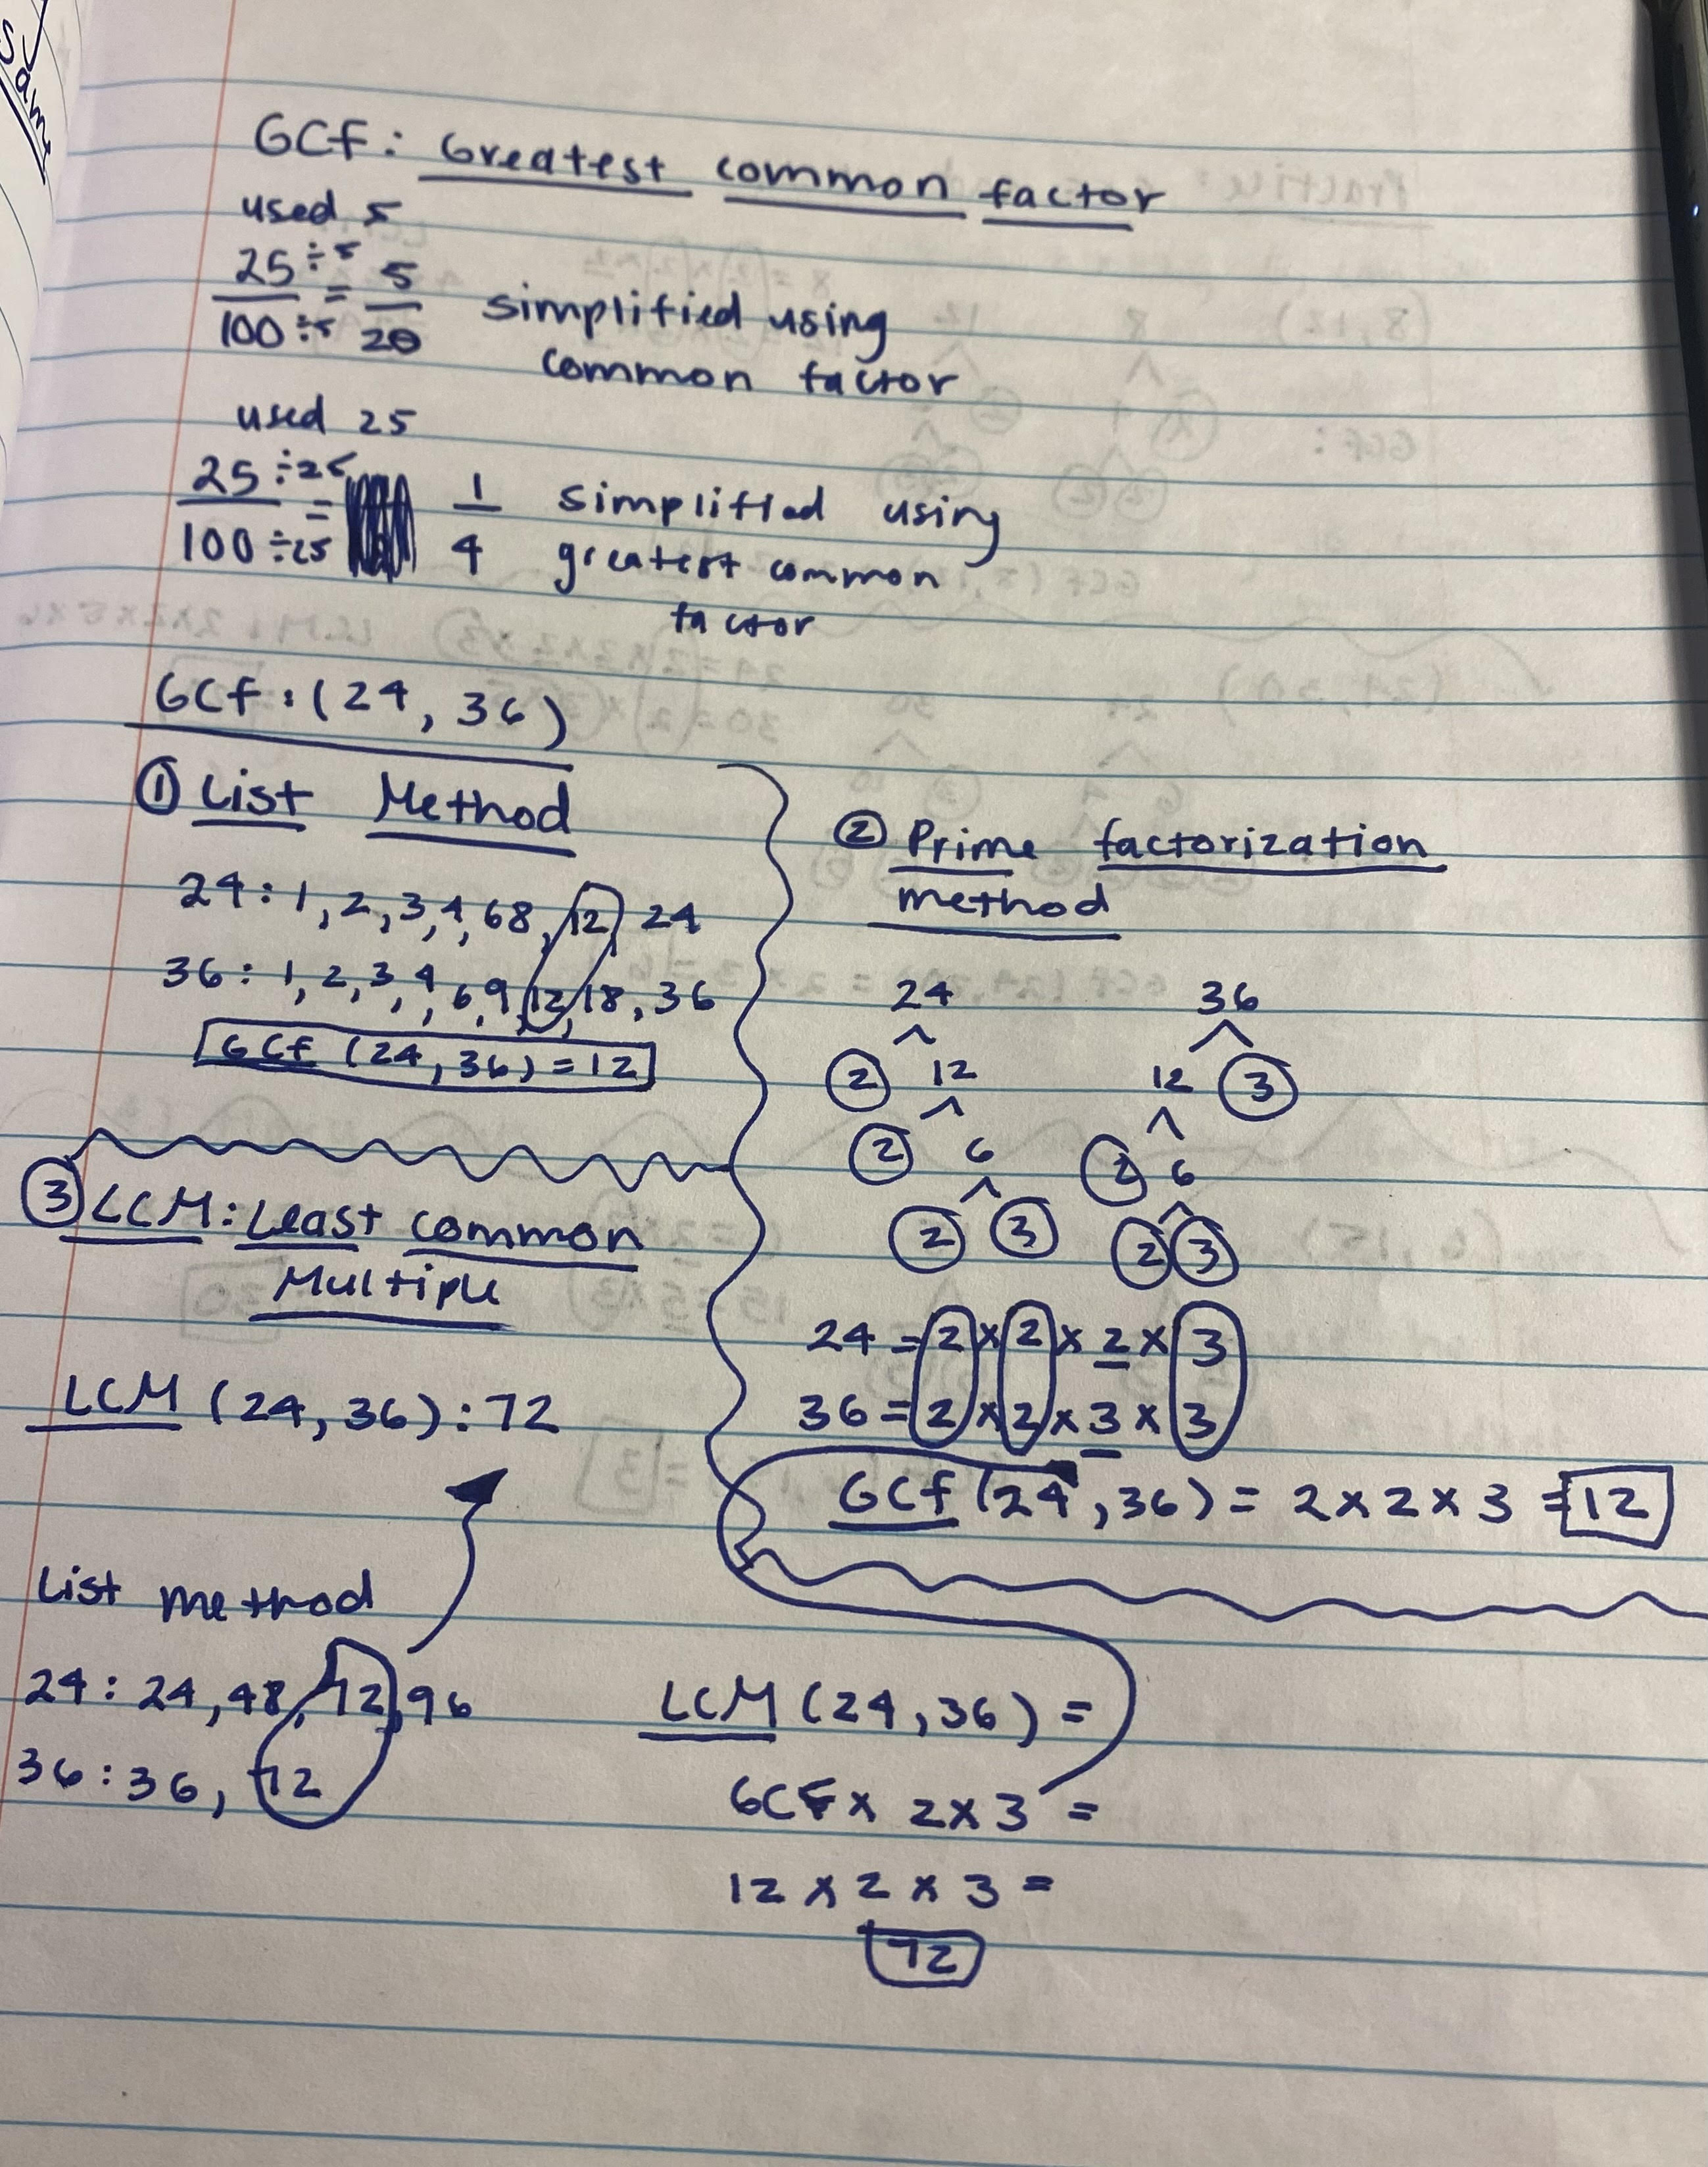 Sam
GCF: Greatest common factor
used 5
25 ÷5 = 5
100 ÷5 20
simplified using
common factor
used 25
25 ÷25 = 1
100 ÷25 4
simplified using
greatest common
factor
GCF: (24, 36)
① List Method
24: 1, 2, 3, 4, 6 8, 12, 24
36: 1, 2, 3, 4, 6, 9, 12, 18, 36
GCF (24, 36) = 12
② Prime factorization
method
24 36
2 12 12 3
2 6 2 6
2 3 2 3
24 = 2 x 2 x 2 x 3
36 = 2 x 2 x 3 x 3
GCF (24, 36) = 2 x 2 x 3 = 12
③ LCM: Least common
Multiple
LCM (24, 36): 72
List method
24: 24, 48, 72, 96
36: 36, 72
LCM (24, 36) =
GCF x 2 x 3 =
12 x 2 x 3 =
72